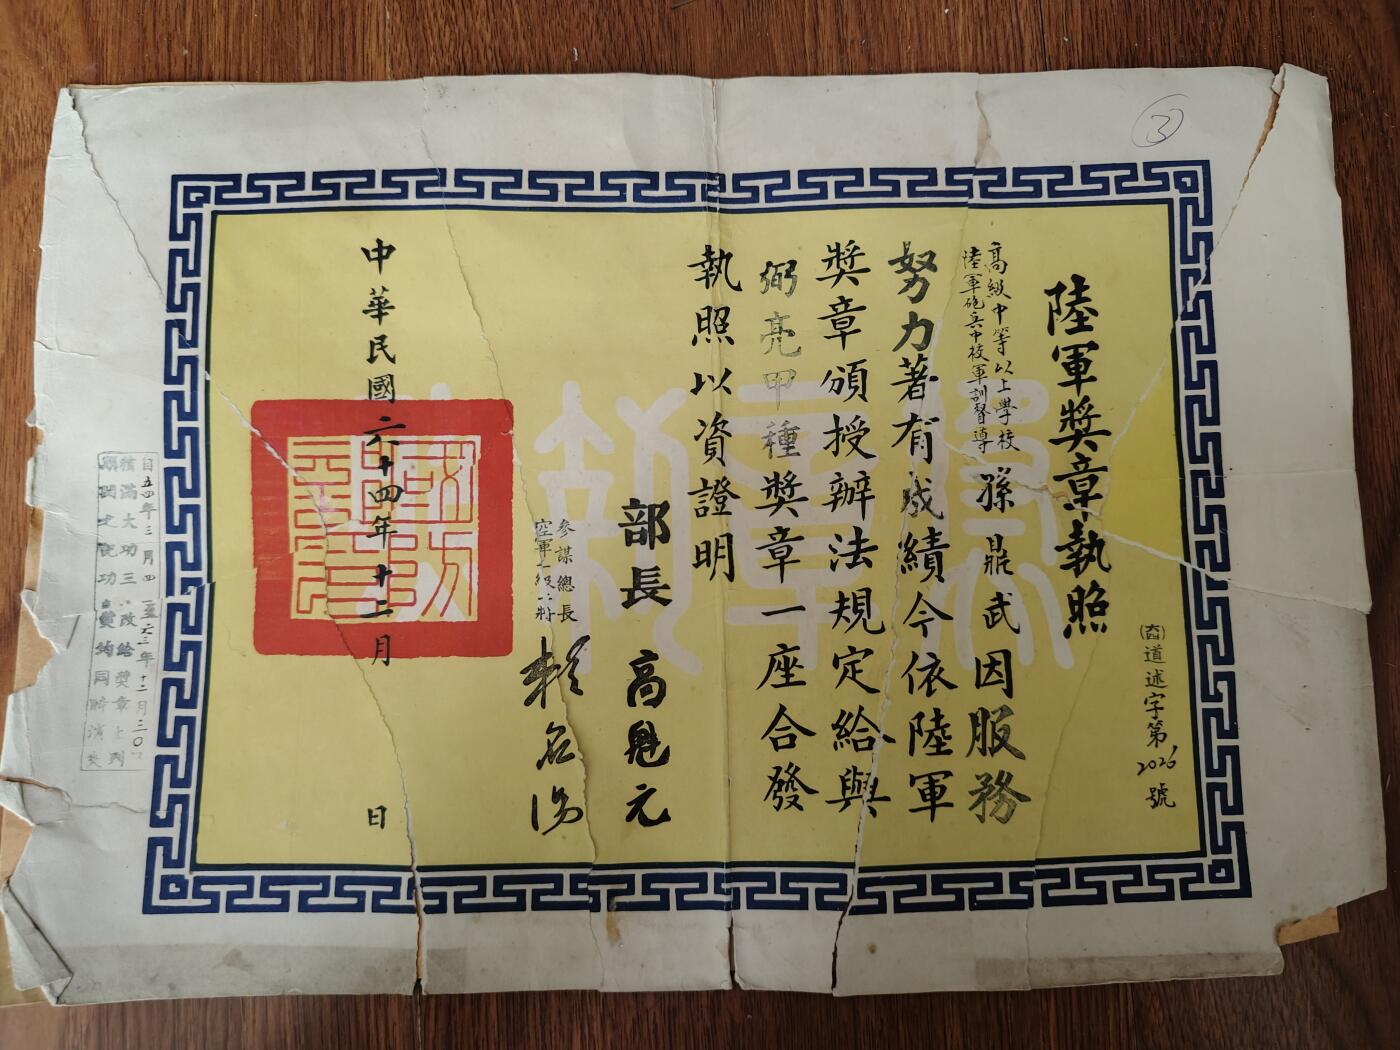 ③
陸軍獎章執照
道述字第2026號
高級中等以上學校
陸軍砲兵中校軍訓督導
孫鼎武因服務
努力著有成績今依陸軍
獎章頒授辦法規定給與
弼亮甲種獎章一座合發
執照以資證明
部長 高魁元
參謀總長
空軍一級上將
賴名湯
中華民國六十四年十二月 日
自五四年三月四日至六三年十二月三〇
積滿大功三次改給獎章上列
功
同時消失